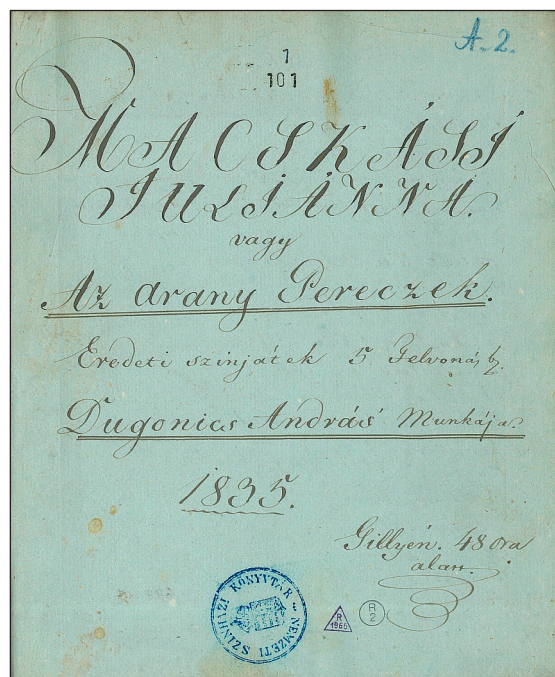 A. 2.
1
101
MACSKÁSI
JULIÁNNA.
vagy
Az arany Pereczek.
Eredeti szinjáték 5 Felvonásb.
Dugonics András' Munkája.
1835.
Gillyén. 48 ora
alatt.
NEMZETI SZINHÁZI KÖNYVTÁR
R
1966
R
2